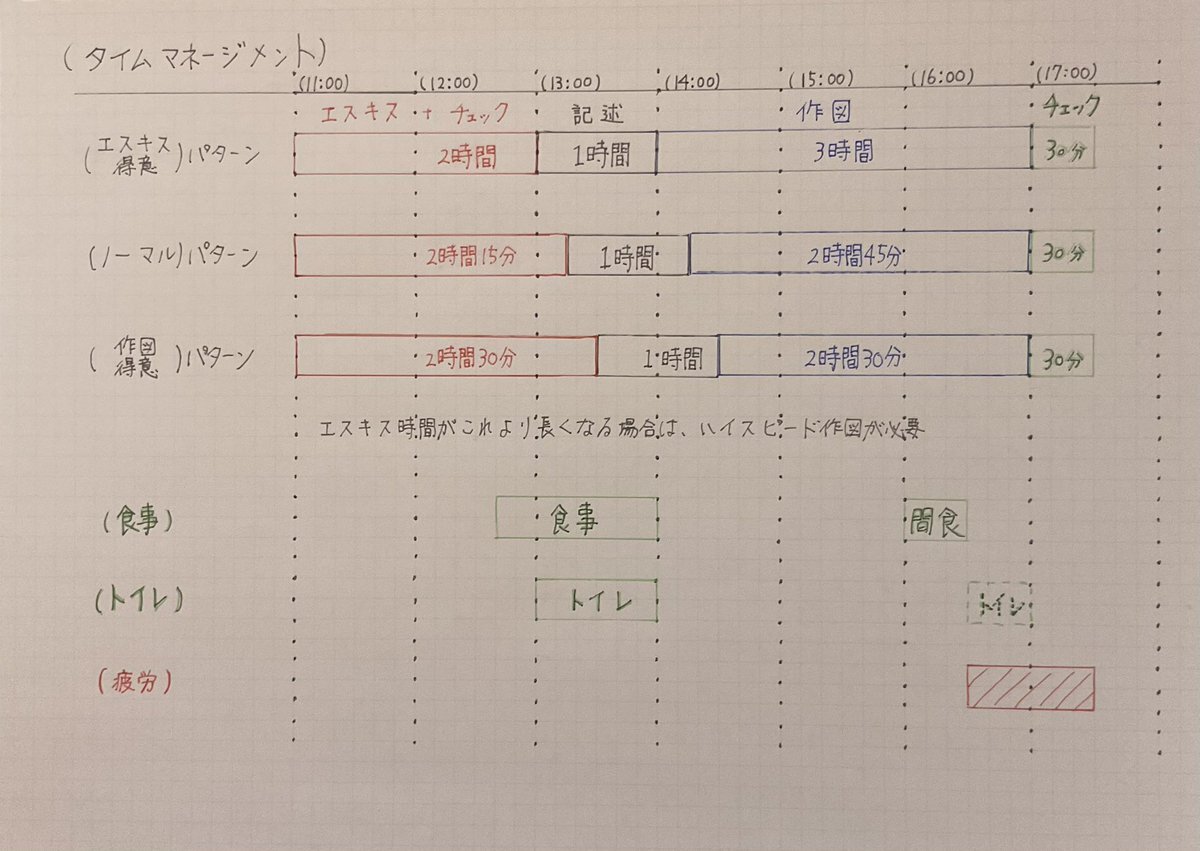 (タイムマネージメント)
(11:00) (12:00) (13:00) (14:00) (15:00) (16:00) (17:00)
エスキス + チェック 記述 作図 チェック
(エスキス得意)パターン 2時間 1時間 3時間 30分
(ノーマル)パターン 2時間15分 1時間 2時間45分 30分
(作図得意)パターン 2時間30分 1時間 2時間30分 30分
エスキス時間がこれより長くなる場合は、ハイスピード作図が必要
(食事) 食事 間食
(トイレ) トイレ トイレ
(疲労)